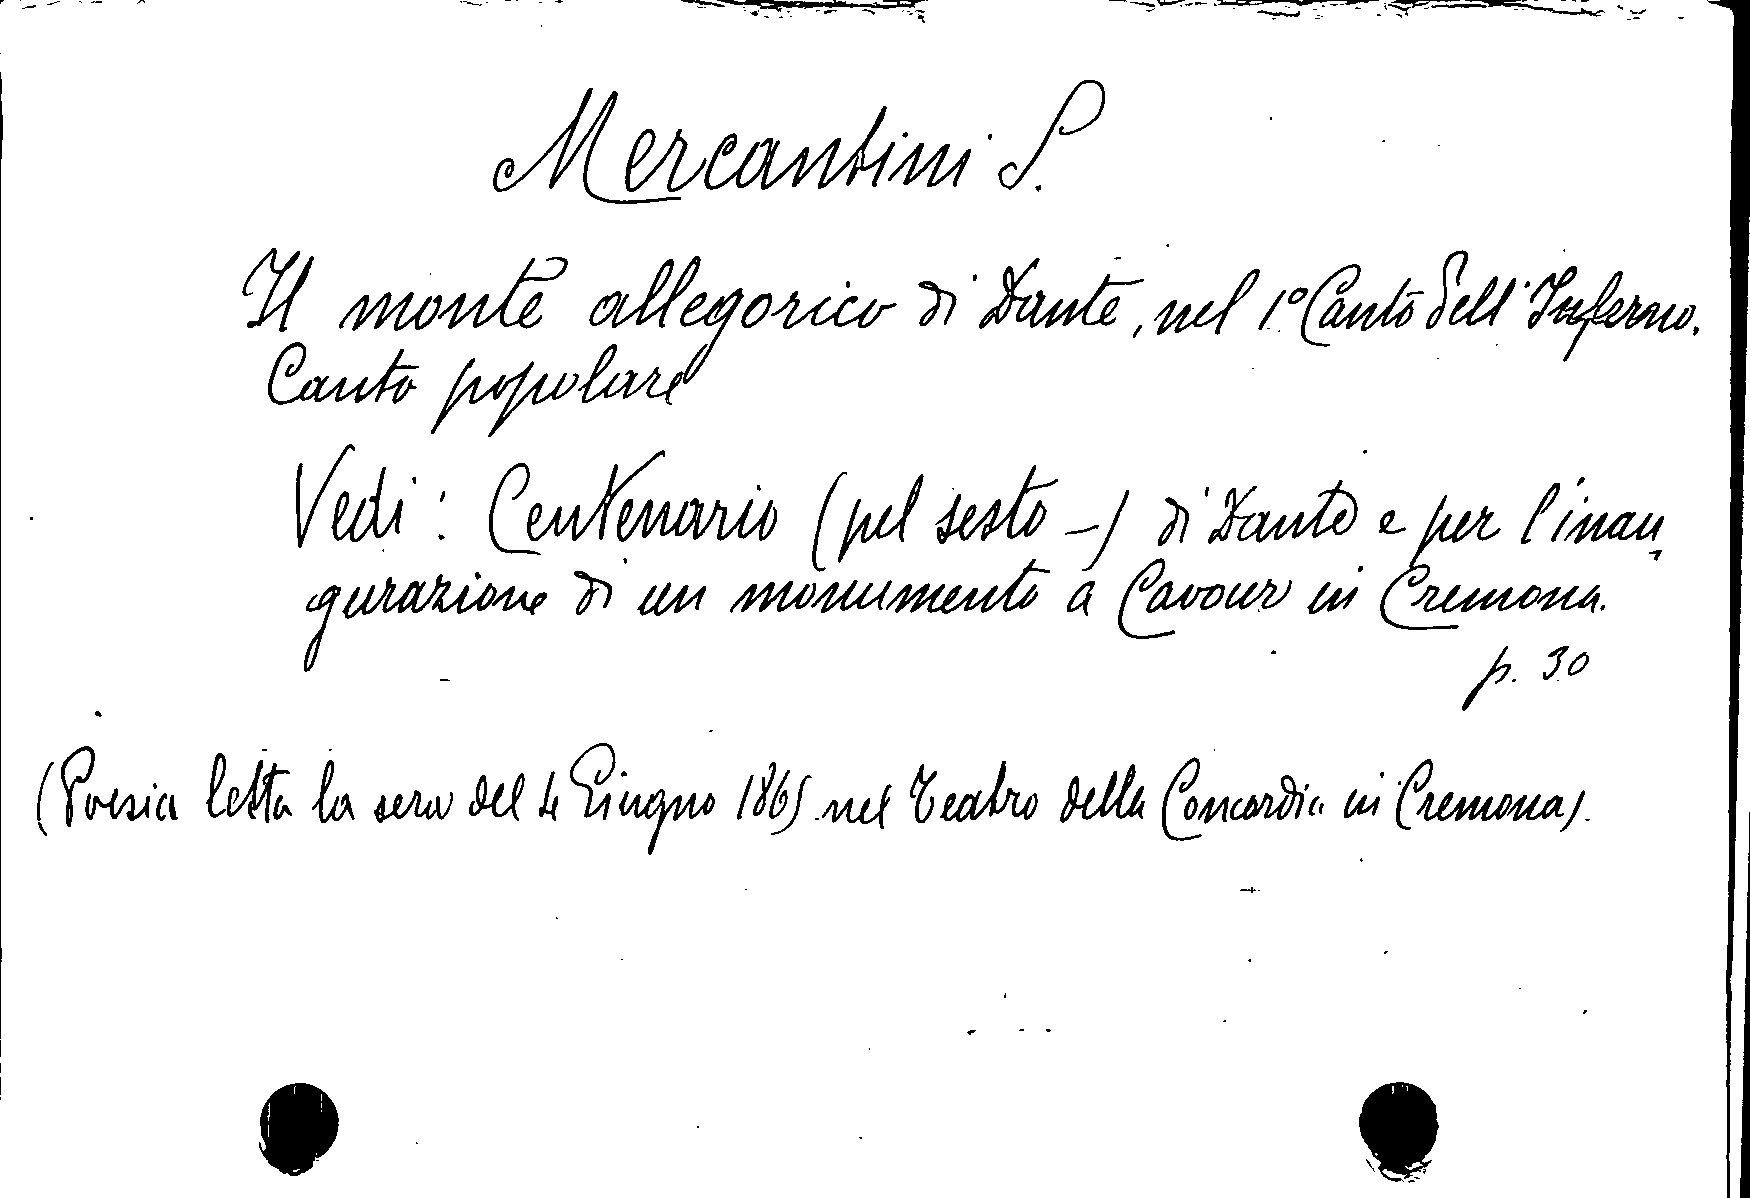 Mercantini S.
Il monte allegorico di Dante, nel 1° Canto dell'Inferno.
Canto popolare
Vedi: Centenario (pel sesto -) di Dante e per l'inau-
gurazione di un monumento a Cavour in Cremona.
p. 30
(Poesia letta la sera del 4 Giugno 1865 nel Teatro della Concordia in Cremona).